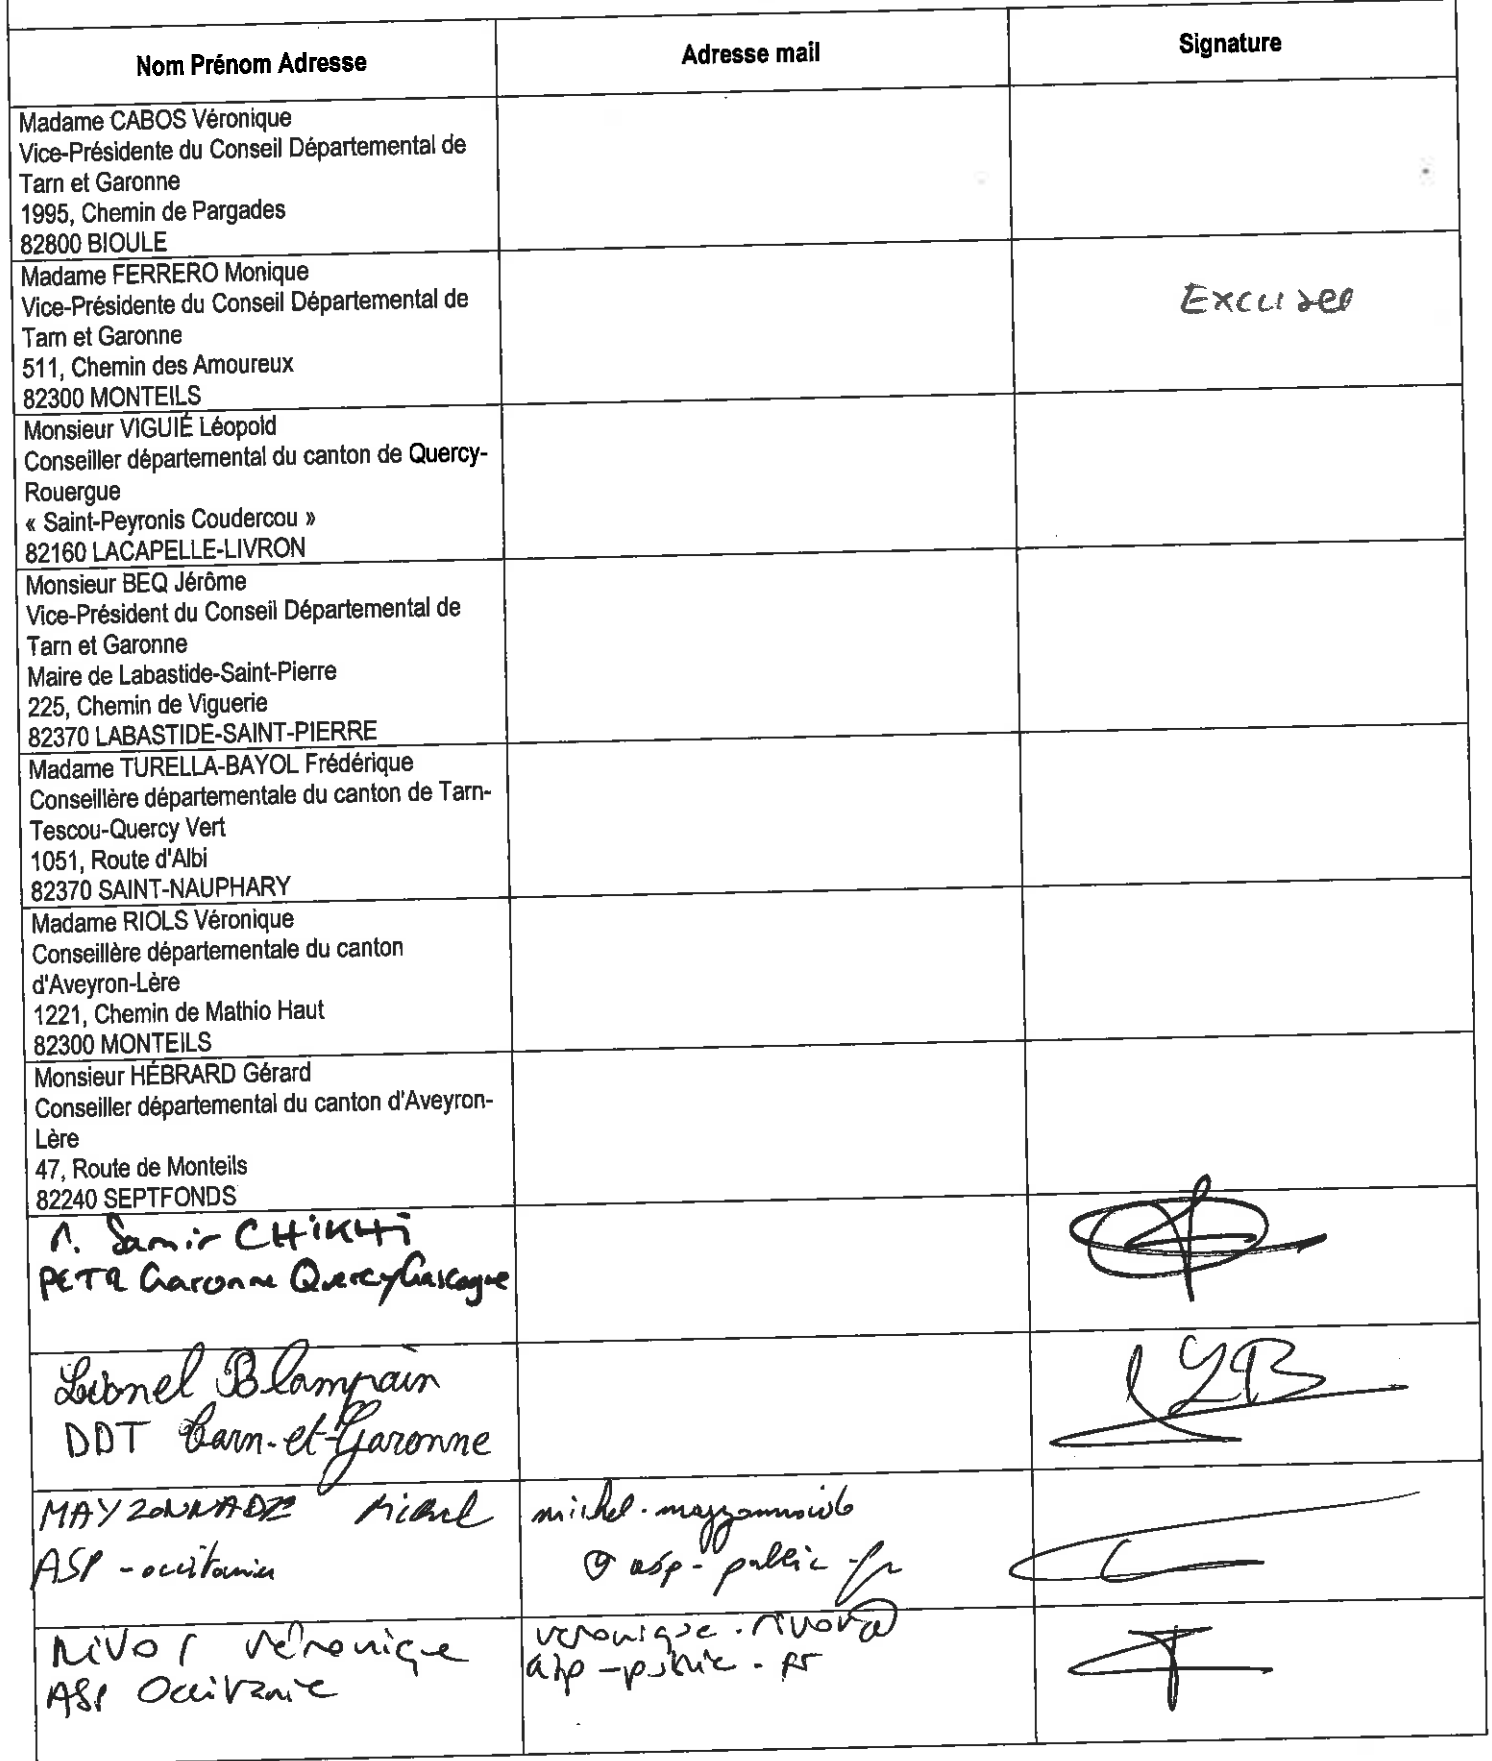 Nom Prénom Adresse
Adresse mail
Signature
Madame CABOS Véronique
Vice-Présidente du Conseil Départemental de
Tarn et Garonne
1995, Chemin de Pargades
82800 BIOULE
Madame FERRERO Monique
Vice-Présidente du Conseil Départemental de
Tarn et Garonne
511, Chemin des Amoureux
82300 MONTEILS
Excusée
Monsieur VIGUIÉ Léopold
Conseiller départemental du canton de Quercy-
Rouergue
« Saint-Peyronis Coudercou »
82160 LACAPELLE-LIVRON
Monsieur BEQ Jérôme
Vice-Président du Conseil Départemental de
Tarn et Garonne
Maire de Labastide-Saint-Pierre
225, Chemin de Viguerie
82370 LABASTIDE-SAINT-PIERRE
Madame TURELLA-BAYOL Frédérique
Conseillère départementale du canton de Tarn-
Tescou-Quercy Vert
1051, Route d'Albi
82370 SAINT-NAUPHARY
Madame RIOLS Véronique
Conseillère départementale du canton
d'Aveyron-Lère
1221, Chemin de Mathio Haut
82300 MONTEILS
Monsieur HÉBRARD Gérard
Conseiller départemental du canton d'Aveyron-
Lère
47, Route de Monteils
82240 SEPTFONDS
Samir CHIKHI
PETR Garonne Quercy Gascogne
Lionel Blampain
DDT Tarn-et-Garonne
MAYZONNADE Michel
ASP - occitanie
michel.mayzonnade
@ asp-public.fr
Véronique
ASP Occitanie
asp-public.fr